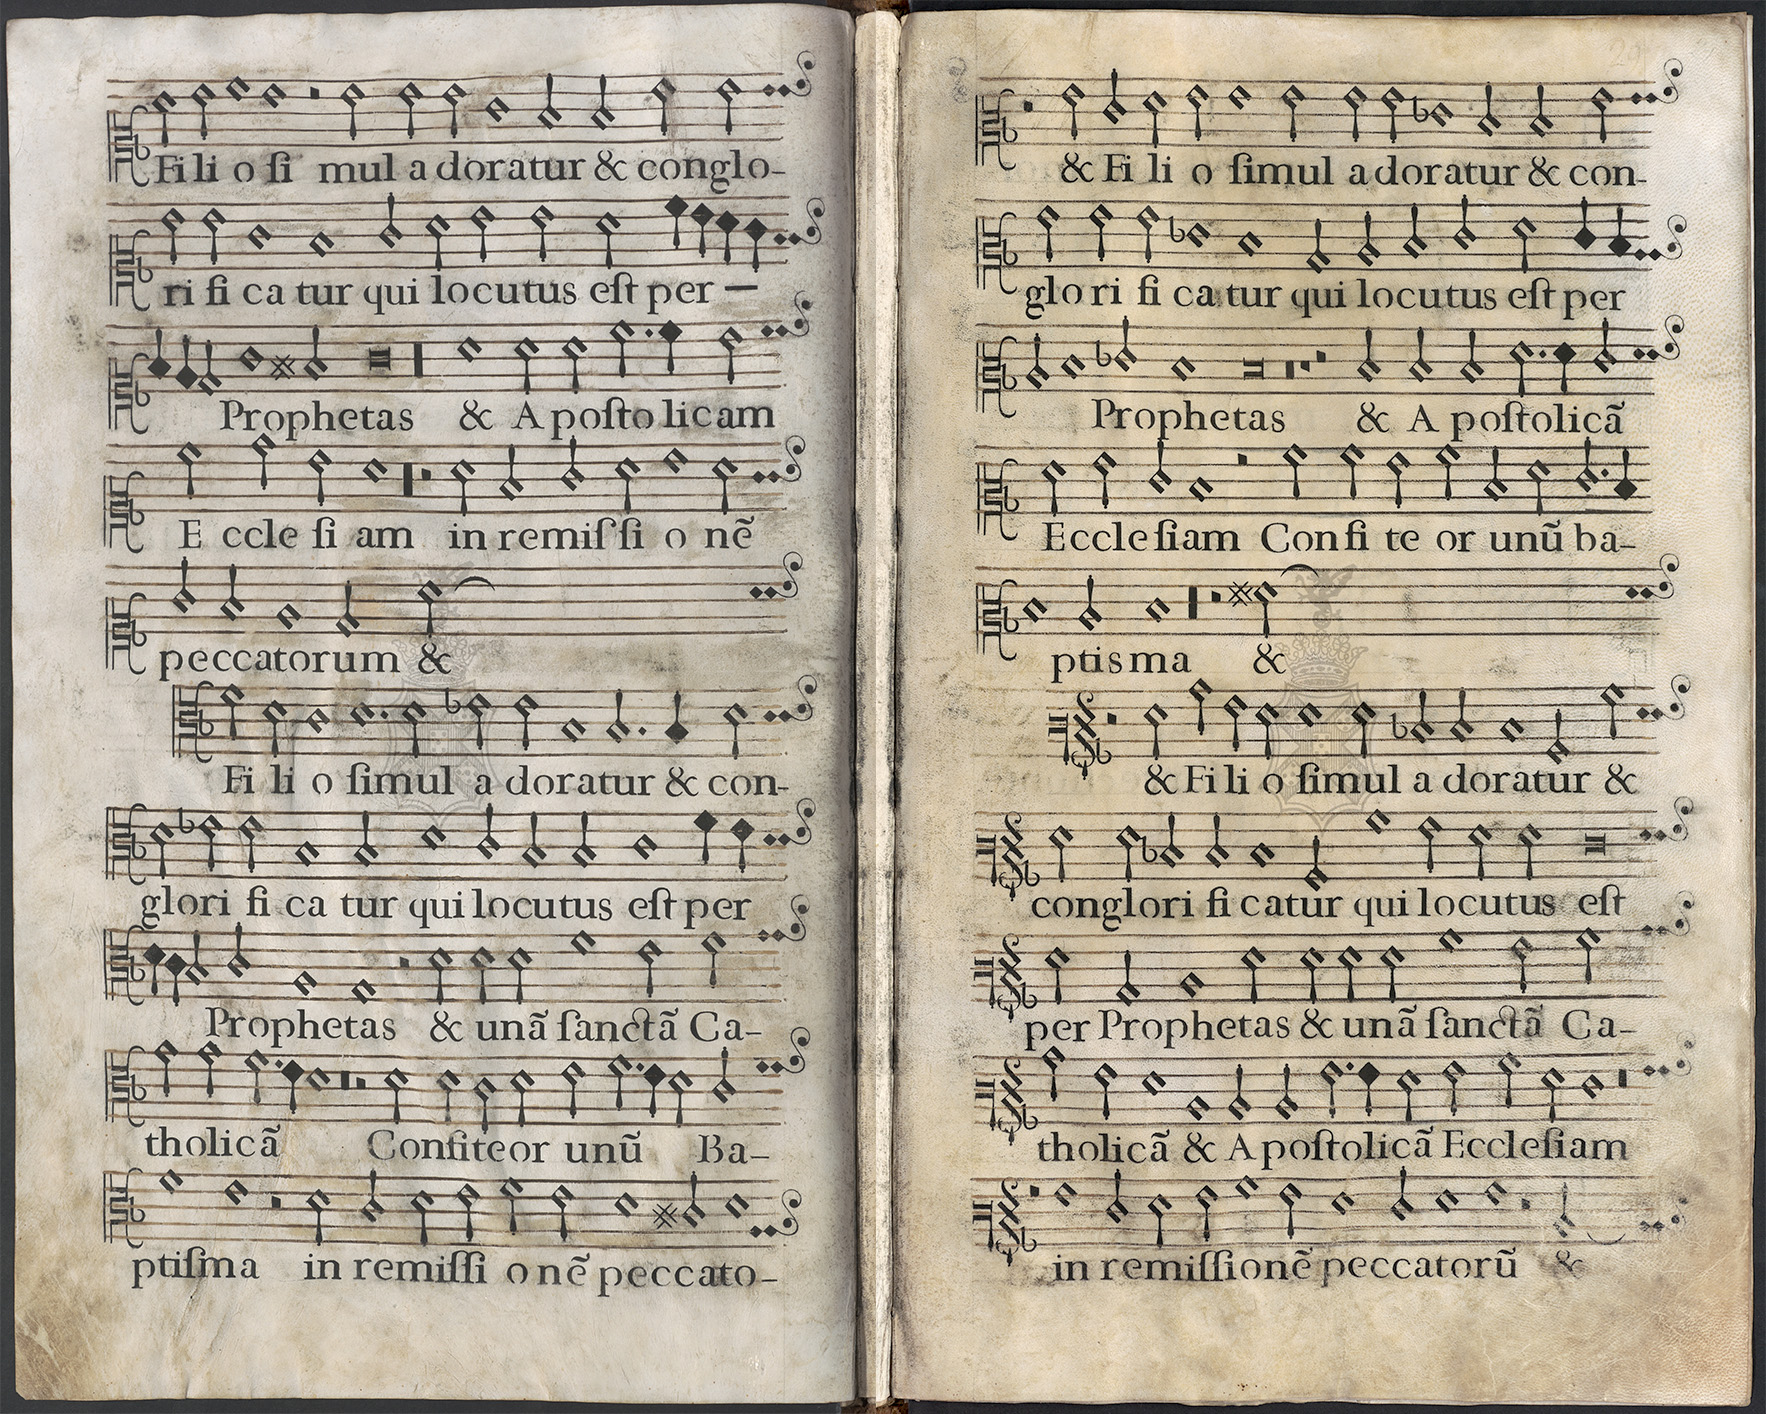 Fi li o ſi mul a doratur & conglo-
ri fi ca tur qui locutus eſt per —
Prophetas & A poſto licam
E ccle ſi am in remiſ ſi o nẽ
peccatorum &
Fi li o ſimul a doratur & con-
glori fi ca tur qui locutus eſt per
Prophetas & unã ſanctã Ca-
tholicã Confiteor unũ Ba-
ptiſma in remiſſi o nẽ peccato-
& Fi li o ſimul adoratur & con-
glo ri fi ca tur qui locutus eſt per
Prophetas & A poſtolicã
Eccle ſiam Confi te or unũ ba-
ptisma &
& Fi li o ſimul a doratur &
conglori fi catur qui locutus eſt
per Prophetas & unã ſanctã Ca-
tholicã & A poſtolicã Eccleſiam
in remiſſionẽ peccatorũ &